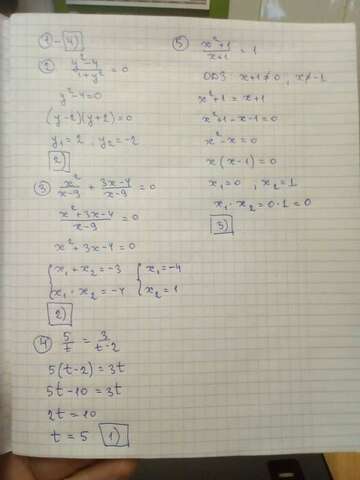 ① - 4)
② y²-4 / 1+y² = 0
y²-4=0
(y-2)(y+2)=0
y₁=2, y₂=-2
2)
③ x² / x-9 + 3x-4 / x-9 = 0
x²+3x-4 / x-9 = 0
x²+3x-4=0
{ x₁+x₂=-3 { x₁=-4
x₁·x₂=-4 x₂=1
2)
④ 5 / t = 3 / t-2
5(t-2)=3t
5t-10=3t
2t=10
t=5 1)
⑤ x²+1 / x+1 = 1
ОДЗ x+1≠0, x≠-1
x²+1=x+1
x²+1-x-1=0
x²-x=0
x(x-1)=0
x₁=0, x₂=1
x₁·x₂=0·1=0
3)